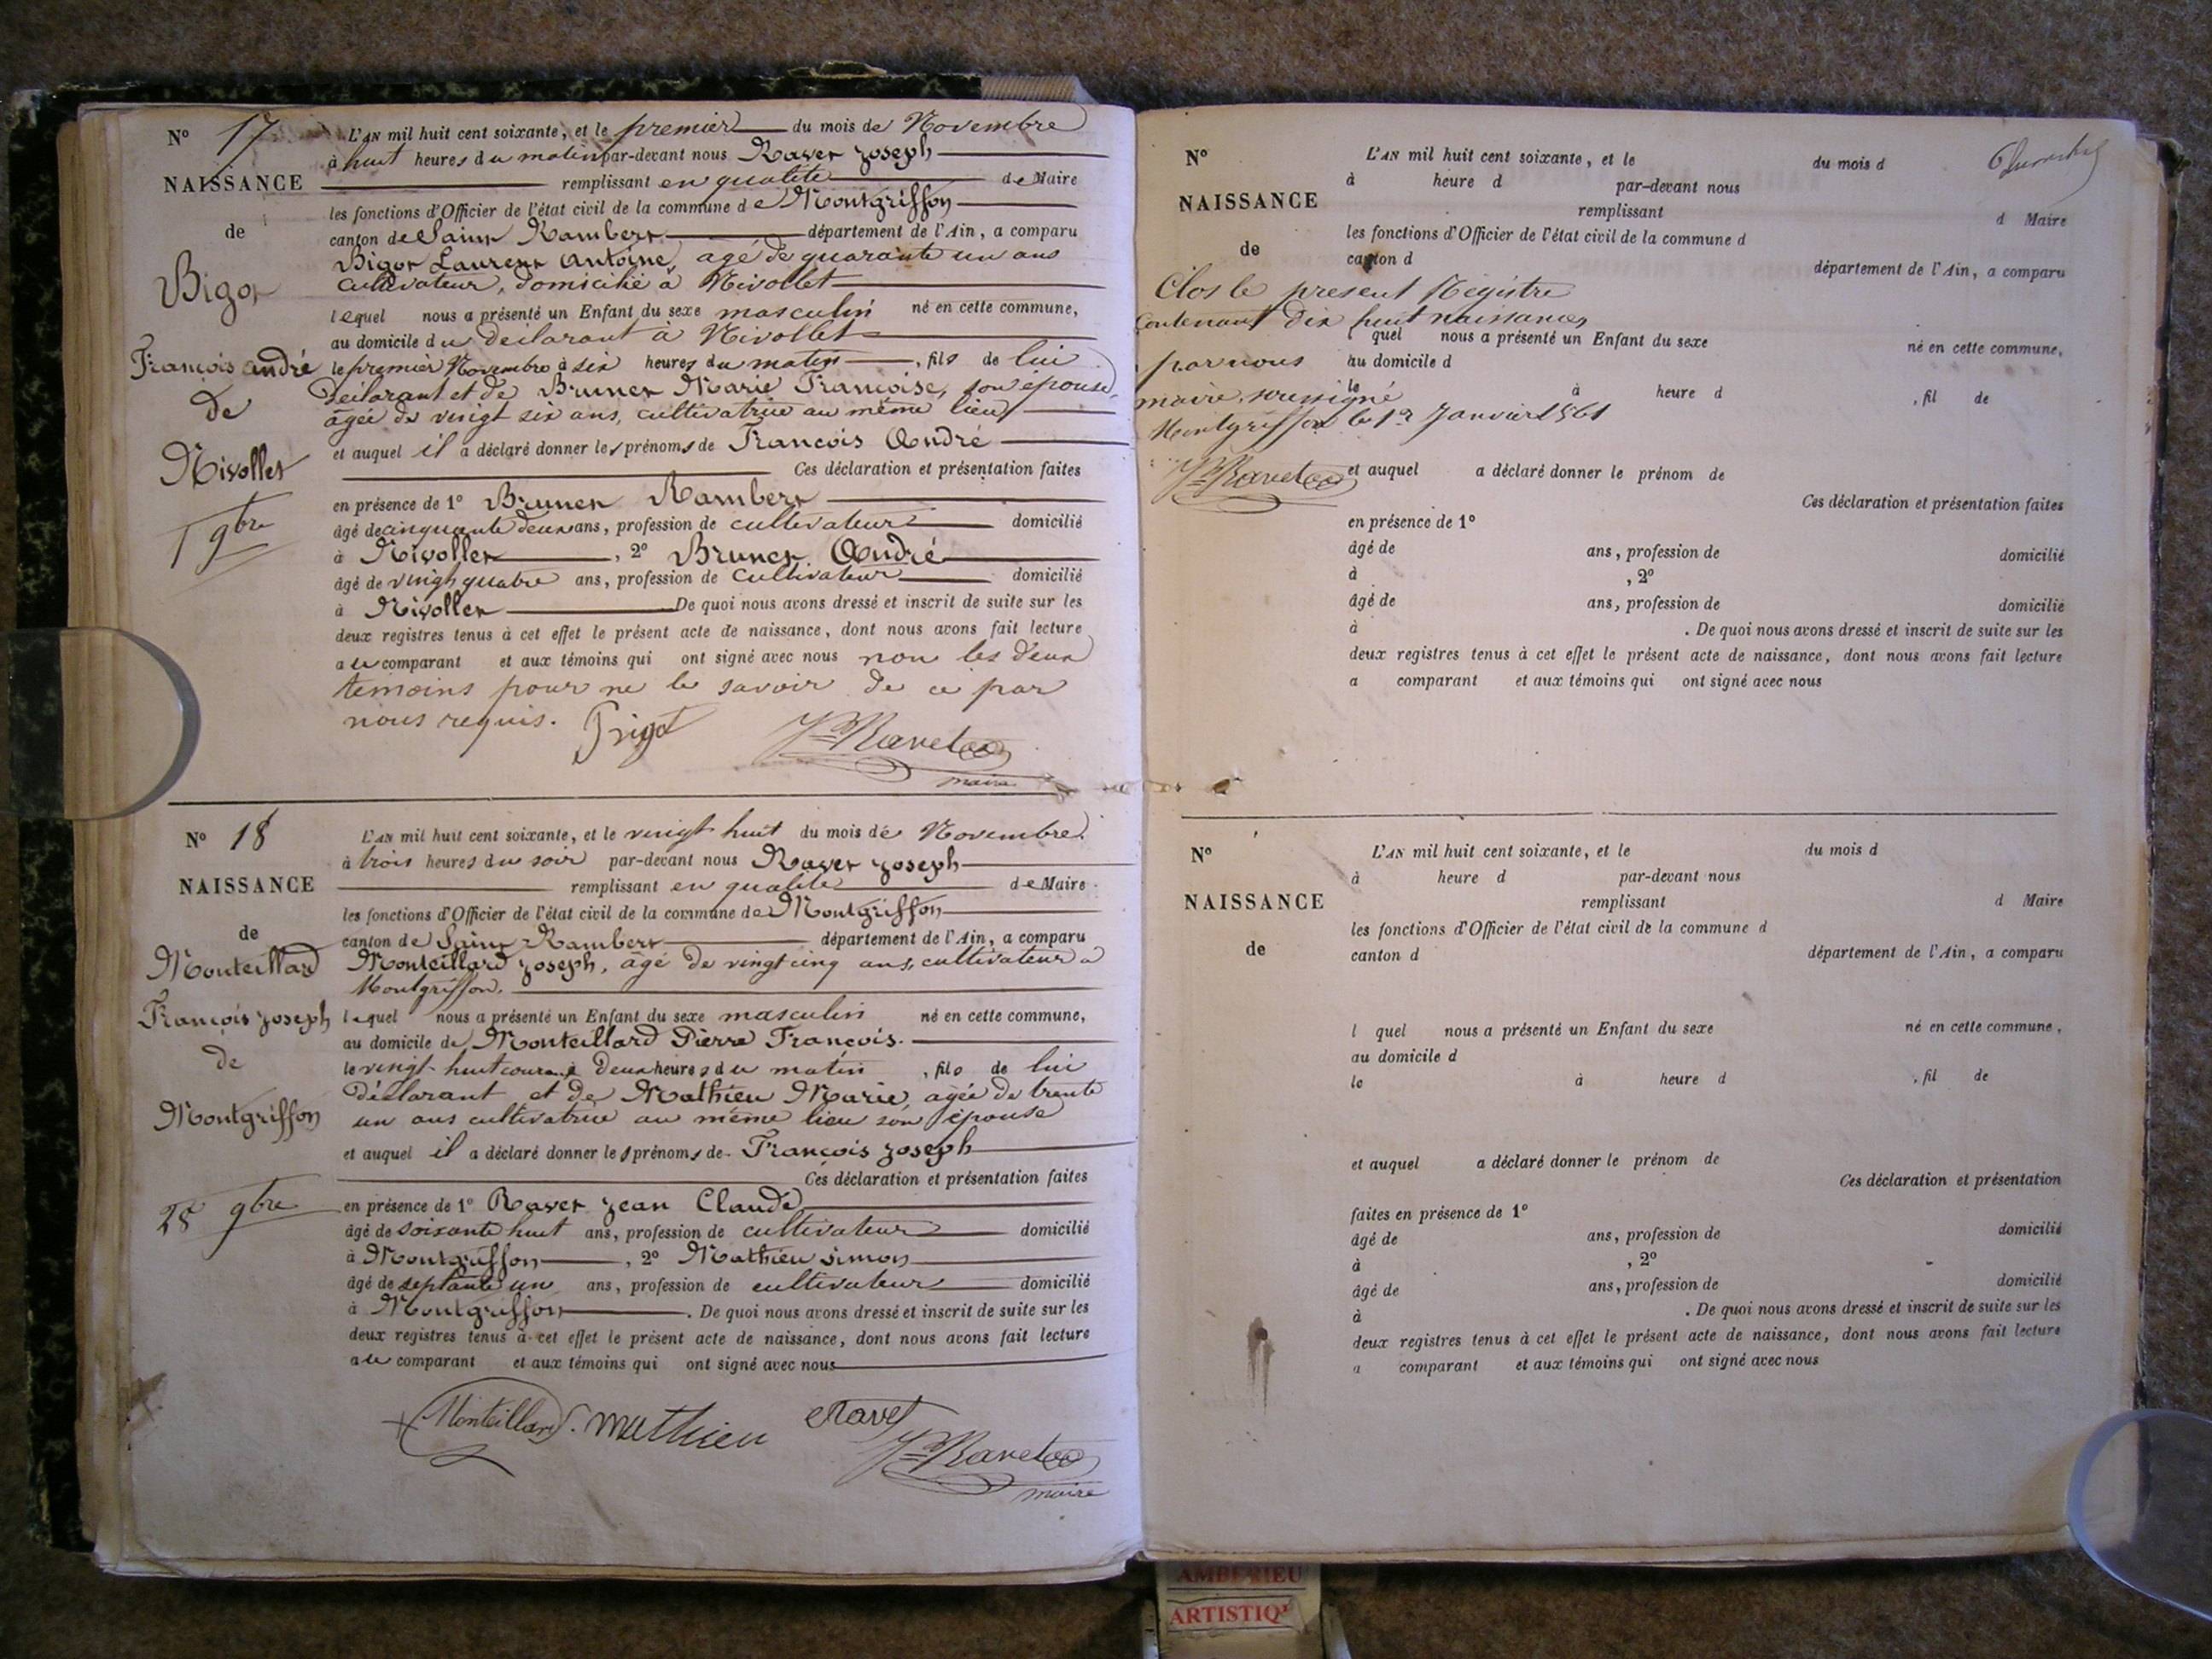 N° 17
NAISSANCE
de
Bigot
François André
de
Nivollet
1 9bre
L'AN mil huit cent soixante, et le premier du mois de Novembre
à huit heures du matin par-devant nous Ravet Joseph
remplissant en qualité de Maire
les fonctions d'Officier de l'état civil de la commune de Montgriffon
canton de Saint Rambert département de l'Ain, a comparu
Bigot Laurent Antoine, agé de quarante un ans
cultivateur, domicilié à Nivollet
lequel nous a présenté un Enfant du sexe masculin né en cette commune,
au domicile du déclarant à Nivollet
le premier Novembre à six heures du matin, fils de lui
déclarant et de Brunet Marie Françoise, son épouse,
âgée de vingt six ans, cultivatrice au même lieu
et auquel il a déclaré donner les prénoms de François André
Ces déclaration et présentation faites
en présence de 1° Brunet Rambert
âgé de cinquante deux ans, profession de cultivateur domicilié
à Nivollet, 2° Brunet André
âgé de vingt quatre ans, profession de cultivateur domicilié
à Nivollet De quoi nous avons dressé et inscrit de suite sur les
deux registres tenus à cet effet le présent acte de naissance, dont nous avons fait lecture
au comparant et aux témoins qui ont signé avec nous non les deux
temoins pour ne le savoir de ce par
nous requis. Bigot Jh Ravet
maire
N° 18
NAISSANCE
de
Monteillard
François Joseph
de
Montgriffon
28 9bre
L'AN mil huit cent soixante, et le vingt huit du mois de Novembre
à trois heures du soir par-devant nous Ravet Joseph
remplissant en qualité de Maire
les fonctions d'Officier de l'état civil de la commune de Montgriffon
canton de Saint Rambert département de l'Ain, a comparu
Monteillard Joseph, âgé de vingt cinq ans, cultivateur a
Montgriffon.
lequel nous a présenté un Enfant du sexe masculin né en cette commune,
au domicile de Monteillard Pierre François.
le vingt-huit courant à deux heures du matin, fils de lui
déclarant et de Mathieu Marie agée de trente
un ans cultivatrice au même lieu son épouse
et auquel il a déclaré donner les prénoms de François Joseph
Ces déclaration et présentation faites
en présence de 1° Ravet Jean Claude
âgé de soixante huit ans, profession de cultivateur domicilié
à Montgriffon, 2° Mathieu Simon
âgé de septante un ans, profession de cultivateur domicilié
à Montgriffon. De quoi nous avons dressé et inscrit de suite sur les
deux registres tenus à cet effet le présent acte de naissance, dont nous avons fait lecture
au comparant et aux témoins qui ont signé avec nous
Monteillard J. Mathieu Ravet
Jh Ravet
maire
N°
NAISSANCE
de
L'AN mil huit cent soixante, et le du mois d
à heure d par-devant nous
remplissant d Maire
les fonctions d'Officier de l'état civil de la commune d
canton d département de l'Ain, a comparu
Clos le present Régistre
Contenant dix huit naissances
quel nous a présenté un Enfant du sexe né en cette commune,
par nous au domicile d
le à heure d, fil de
maire soussigné
Montgriffon le 1er Janvier 1861
Jh Ravet et auquel a déclaré donner le prénom de
Ces déclaration et présentation faites
en présence de 1°
âgé de ans, profession de domicilié
à , 2°
âgé de ans, profession de domicilié
à . De quoi nous avons dressé et inscrit de suite sur les
deux registres tenus à cet effet le présent acte de naissance, dont nous avons fait lecture
a comparant et aux témoins qui ont signé avec nous
N°
NAISSANCE
de
L'AN mil huit cent soixante, et le du mois d
à heure d par-devant nous
remplissant d Maire
les fonctions d'Officier de l'état civil de la commune d
canton d département de l'Ain, a comparu
l quel nous a présenté un Enfant du sexe né en cette commune,
au domicile d
le à heure d , fil de
et auquel a déclaré donner le prénom de
Ces déclaration et présentation
faites en présence de 1°
âgé de ans, profession de domicilié
à , 2°
âgé de ans, profession de domicilié
à . De quoi nous avons dressé et inscrit de suite sur les
deux registres tenus à cet effet le présent acte de naissance, dont nous avons fait lecture
a comparant et aux témoins qui ont signé avec nous
AMBERIEU
ARTISTIQ